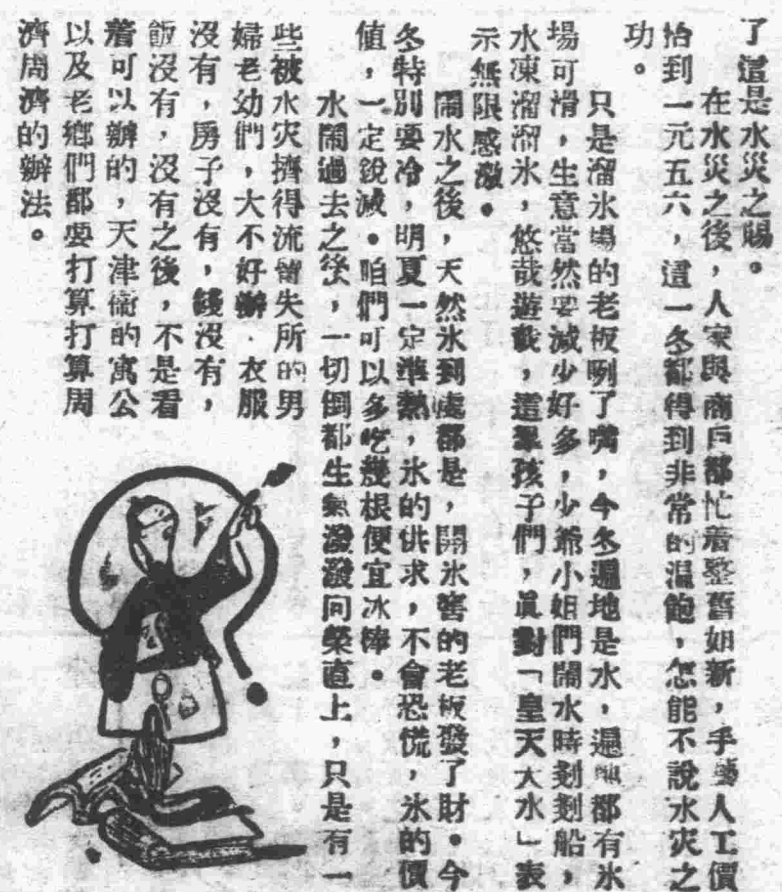 了這是水災之賜。
在水災之後，人家與商戶都忙着整舊如新，手藝人工價
恰到一元五六，這一冬都得到非常的溫飽，怎能不說水灾之
功。
只是溜氷塲的老板咧了嘴，今冬遍地是水，遍地都有氷
場可滑，生意當然要減少好多，少爺小姐們鬧水時划划船，
水凍溜溜氷，悠哉遊哉，這羣孩子們，眞對「皇天大水」表
示無限感激。
鬧水之後，天然氷到處都是，開氷窖的老板發了財。今
冬特別要冷，明夏一定準熱，氷的供求，不會恐慌，氷的價
値，一定銳减。咱們可以多吃幾根便宜冰棒。
水鬧過去之後，一切倒都生氣潑潑向榮直上，只是有一
些被水灾擠得流留失所的男
婦老幼們，大不好辦．衣服
沒有，房子沒有，錢沒有，
飯沒有，沒有之後，不是看
着可以辦的，天津衞的寓公
以及老鄉們都要打算打算周
濟周濟的辦法。